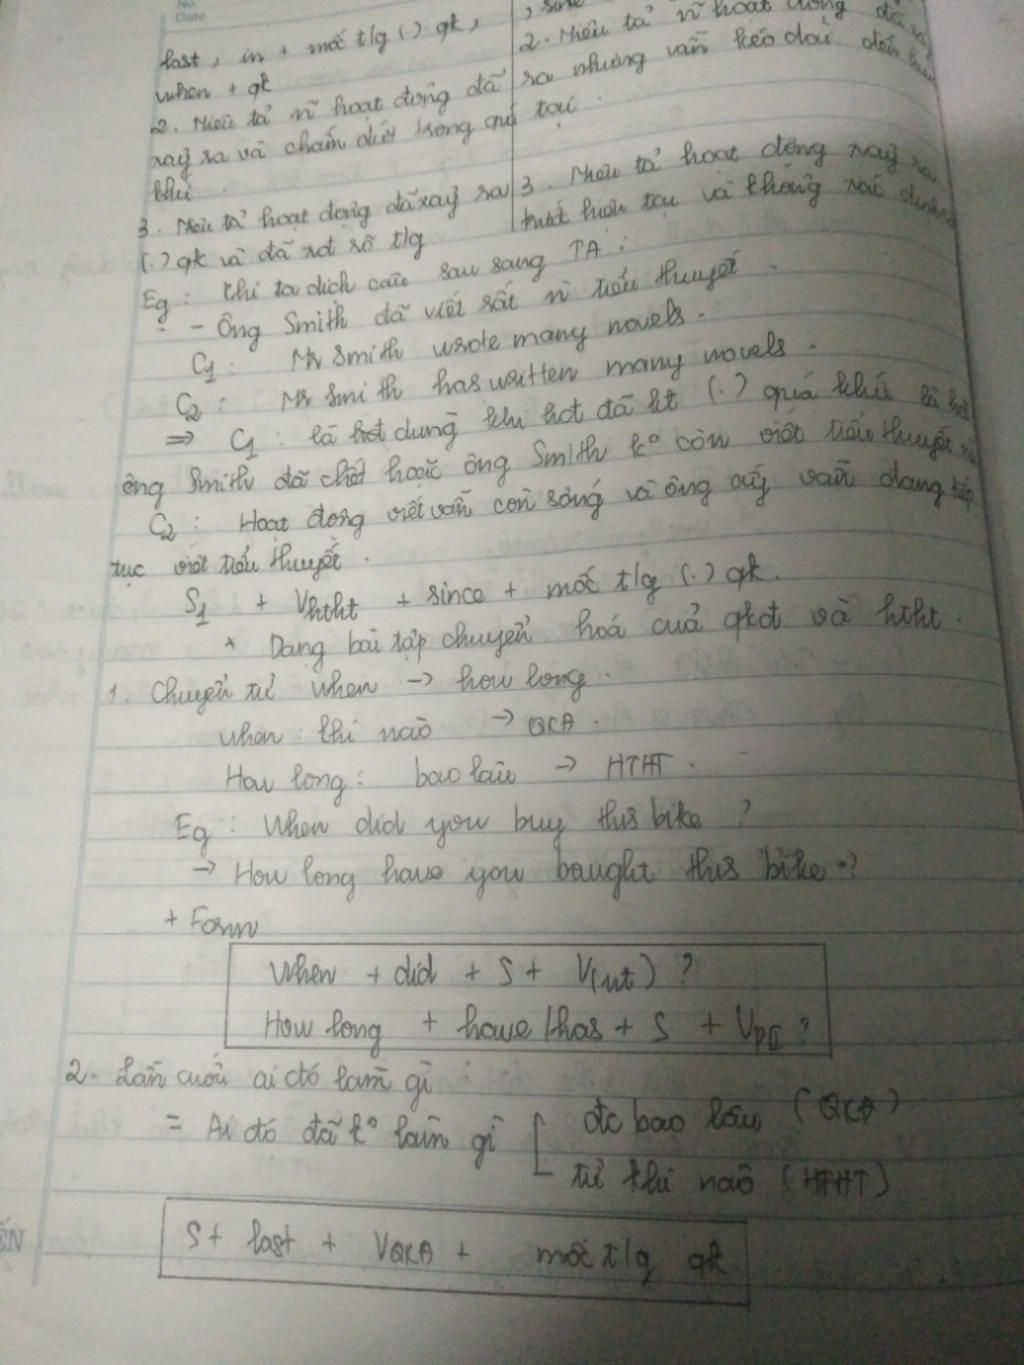 No.
Date
last, in + mốc t/g (.) qk,
, since
when + qk
2. Miêu tả n~ hoạt động đã
xảy ra và chấm dứt trong quá
khứ.
3. Miêu tả hoạt động đã xảy ra
(.) qk và đã xđ rõ t/g
2. Miêu tả n~ hoạt động đã xảy
ra nhưng vẫn kéo dài đến hiện
tại.
3. Miêu tả hoạt động xảy ra
trước hiện tại và không xác định
Eg : Khi ta dịch câu sau sang TA :
- Ông Smith đã viết rất n~ tiểu thuyết.
C1 : Mr Smith wrote many novels.
C2 : Mr Smith has written many novels.
=> C1 : là hđt dùng khi hđt đã kt (.) quá khứ là
ông Smith đã chết hoặc ông Smith k° còn viết tiểu thuyết
C2 : Hoạt động viết vẫn còn sống và ông ấy vẫn đang tiếp
tục viết tiểu thuyết.
S1 + Vhtht + since + mốc t/g (.) qk.
* Dạng bài tập chuyển hoá của qkđ và htht.
1. Chuyển từ when -> how long.
when : khi nào -> QKĐ.
How long : bao lâu -> HTHT.
Eg : When did you buy this bike ?
-> How long have you bought this bike ?
+ Form
When + did + S + V(nt) ?
How long + have/has + S + VpII ?
2. Lần cuối ai đó làm gì :
= Ai đó đã k° làm gì [ đc bao lâu (QKĐ)
từ khi nào (HTHT)
S + last + VQKĐ + mốc t/g qk
ẾN